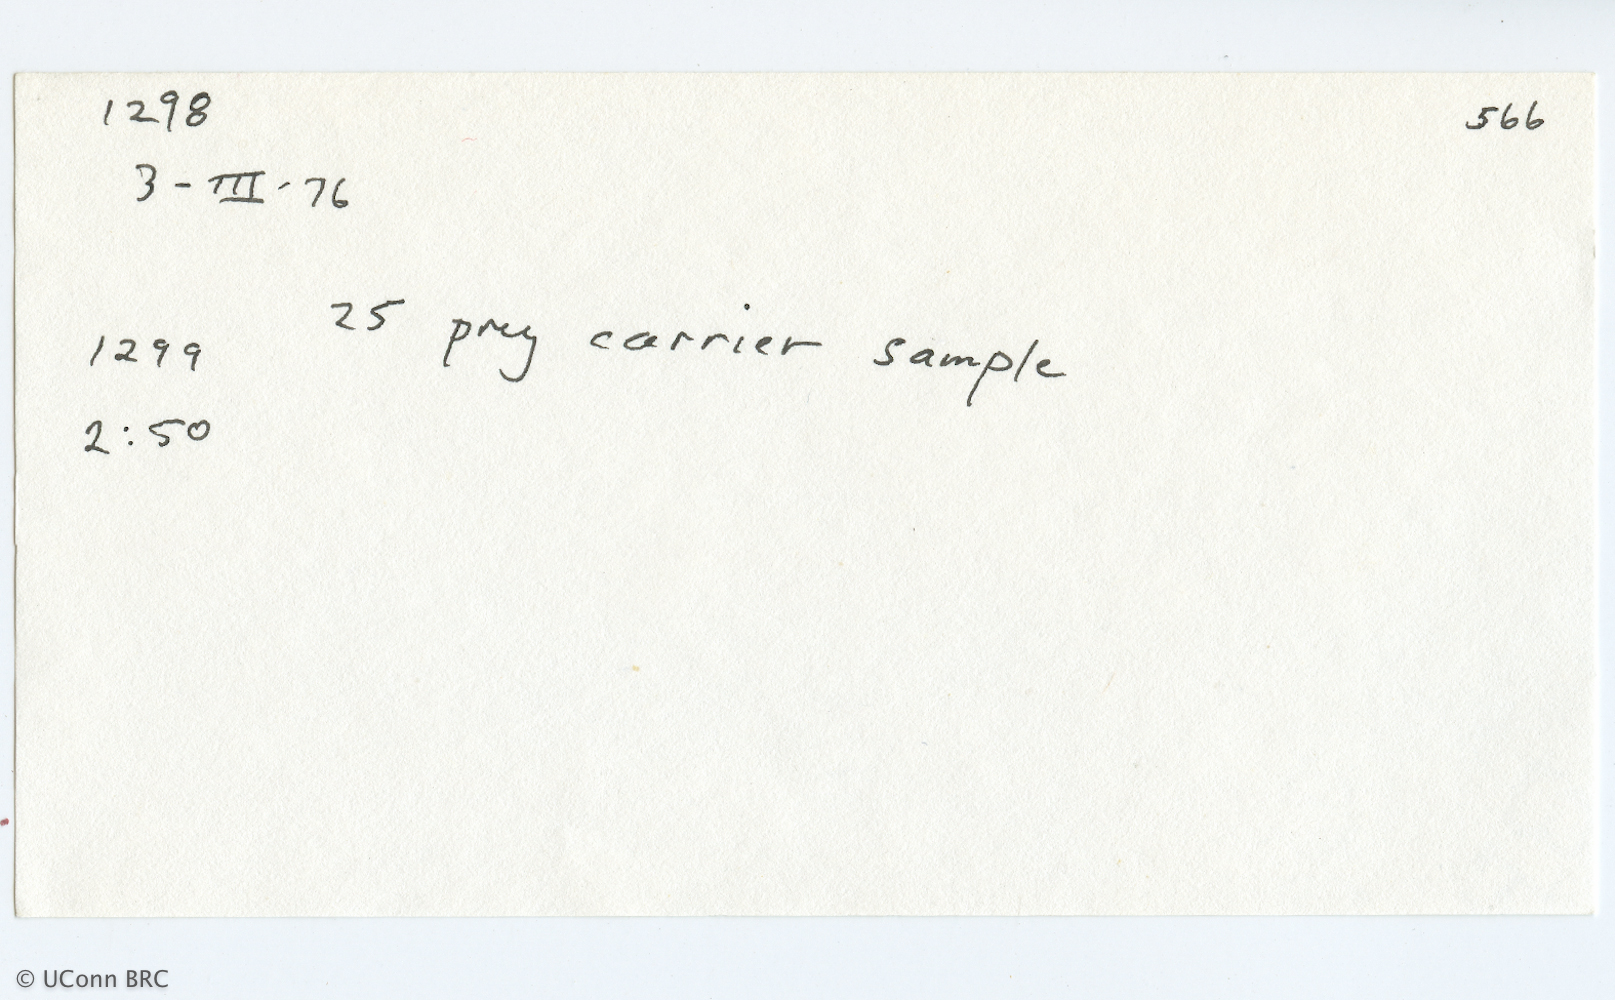 1298
566
3-III-76
25 prey carrier sample
1299
2:50
© UConn BRC